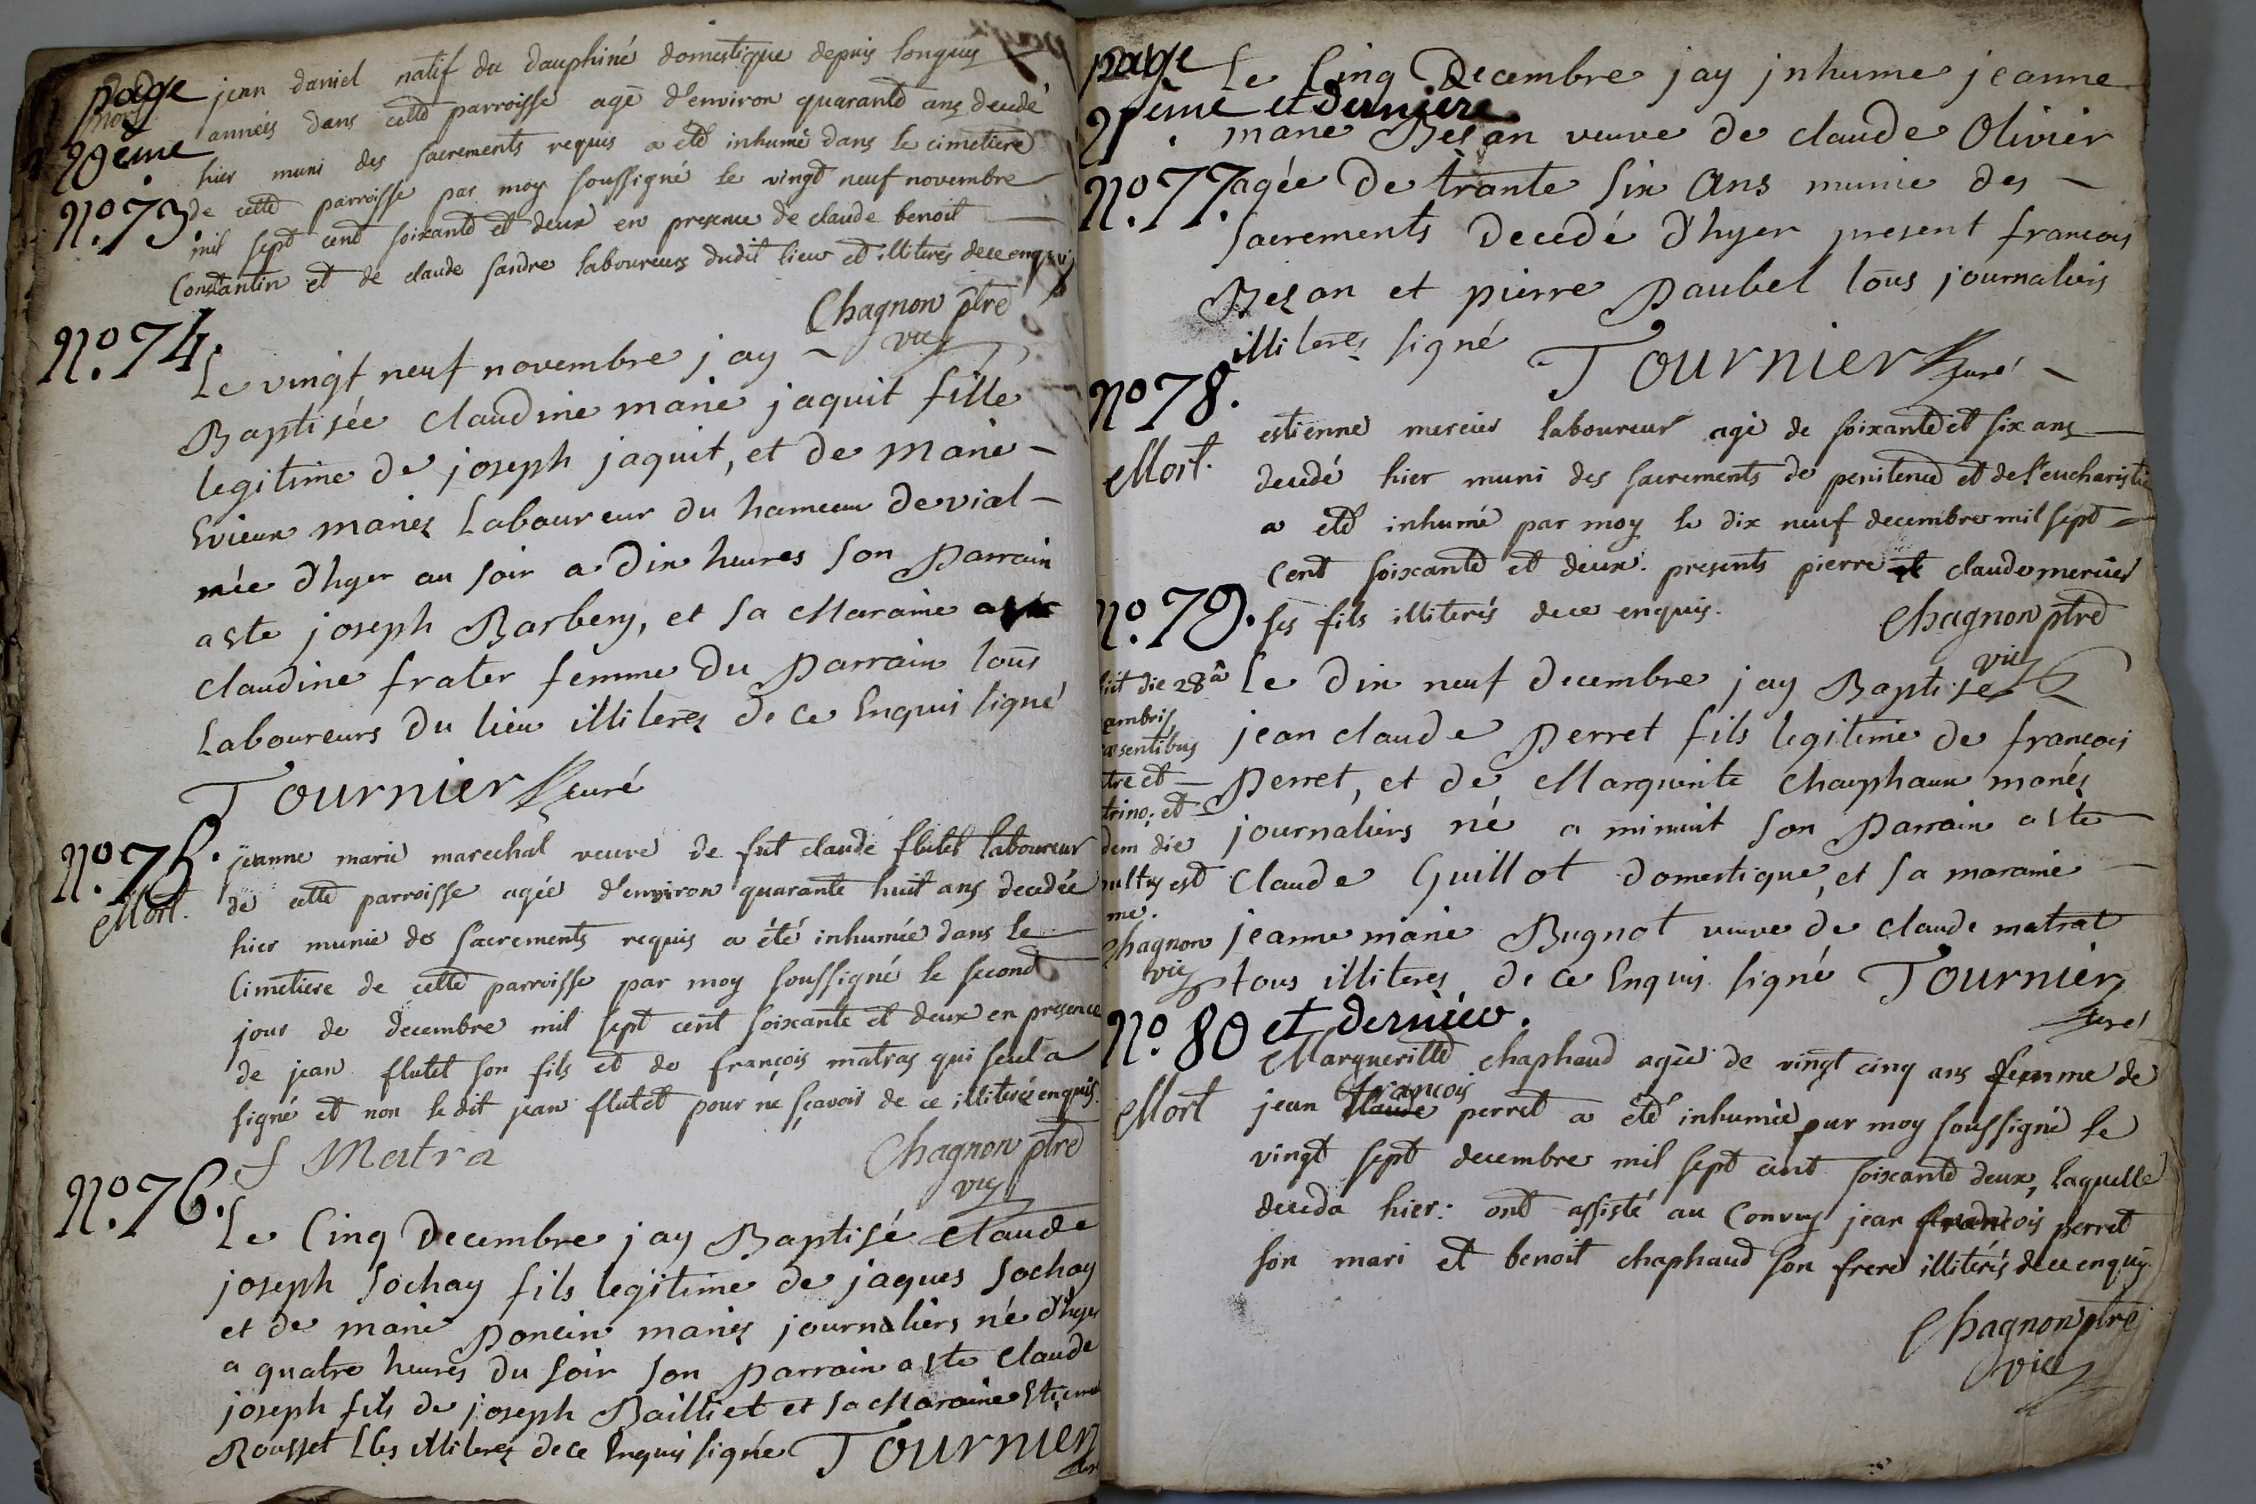 page
mort
20ème
N°.73.
jean daniel natif du dauphiné domestique depuis longues
années dans cette parroisse agé d'environ quarante ans decedé
hier muni des sacrements requis a eté inhumé dans le cimetiere
de cette parroisse par moy soussigné le vingt neuf novembre
mil sept cent soixante et deux en presence de claude benoit
Constantin et de claude sandre laboureurs dudit lieu et illiterés de ce enquis
Chagnon ptre
vic
N°.74.
Le vingt neuf novembre jay
Baptisée claudine marie jaquit fille
legitime de joseph jaquit, et de marie
Evieux mariez Laboureur du hameau de vial
née d'hyer au soir a dix heures son parrain
a Este joseph Barbery, et sa Maraine
claudine frater femme du parrain tous
Laboureurs du lieu illiterez de ce Enquis signé
Tournier curé
N°.75.
Mort.
jeanne marie marechal veuve de fut claude flutet laboureur
de cette parroisse agée d'environ quarante huit ans decedée
hier munie des sacrements requis a été inhumée dans le
Cimetiere de cette parroisse par moy soussigné le second
jour de decembre mil sept cent soixante et deux en presence
de jean flutet son fils et de françois matras qui seul a
signé et non le dit jean flutet pour ne sçavoir de ce illiteré enquis.
f Matra
Chagnon ptre
vic
N°.76.
Le Cinq Decembre jay Baptisé Claude
joseph Sochay fils legitime de jaques Sochay
et de marie poncin mariez journaliers né d'hyer
a quatre heures du soir son parrain a Este Claude
joseph fils de joseph Bailliet et sa Maraine Etienne
Rousset Les illiterez de ce Enquis signé Tournier
page
21ème et dernière
N°.77.
Le Cinq Decembre jay jnhume jeanne
marie Bezan veuve de claude Olivier
agée de trante six ans munie des
Sacrements Decedé d'hyer present francois
Bezan et pierre paubel tous journaliers
illiterez signé
Tournier curé
N°78.
Mort.
estienne mercier laboureur agé de soixante et six ans
decedé hier muni des sacrements de penitence et de l'eucharistie
a eté inhumé par moy le dix neuf decembre mil sept
cent soixante et deux. presents pierre et claude mercier
ses fils illiterés de ce enquis.
Chagnon ptre
vic
N°.79.
die 28â
Le dix neuf decembre jay Baptisé
jean claude perret fils legitime de francois
perret, et de Marguerite Chauphaux mariez
journaliers né a minuit son parrain a Este
Claude Guillot domestique, et sa maraine
jeanne marie Bugnot veuve de claude matrat
tous illiteres de ce Enquis signé Tournier
curé
et
die
est
me.
Chagnon
vic
N°. 80 et dernier.
Mort
Margueritte chaphaud agée de vingt cinq ans femme de
jean francois perret a été inhumée par moy soussigné le
vingt sept decembre mil sept cent soixante deux, laquelle
deceda hier: ont assisté au Convoy jean francois perret
son mari et benoit chaphaud son frere illiterés de ce enquis.
Chagnon ptre
vic